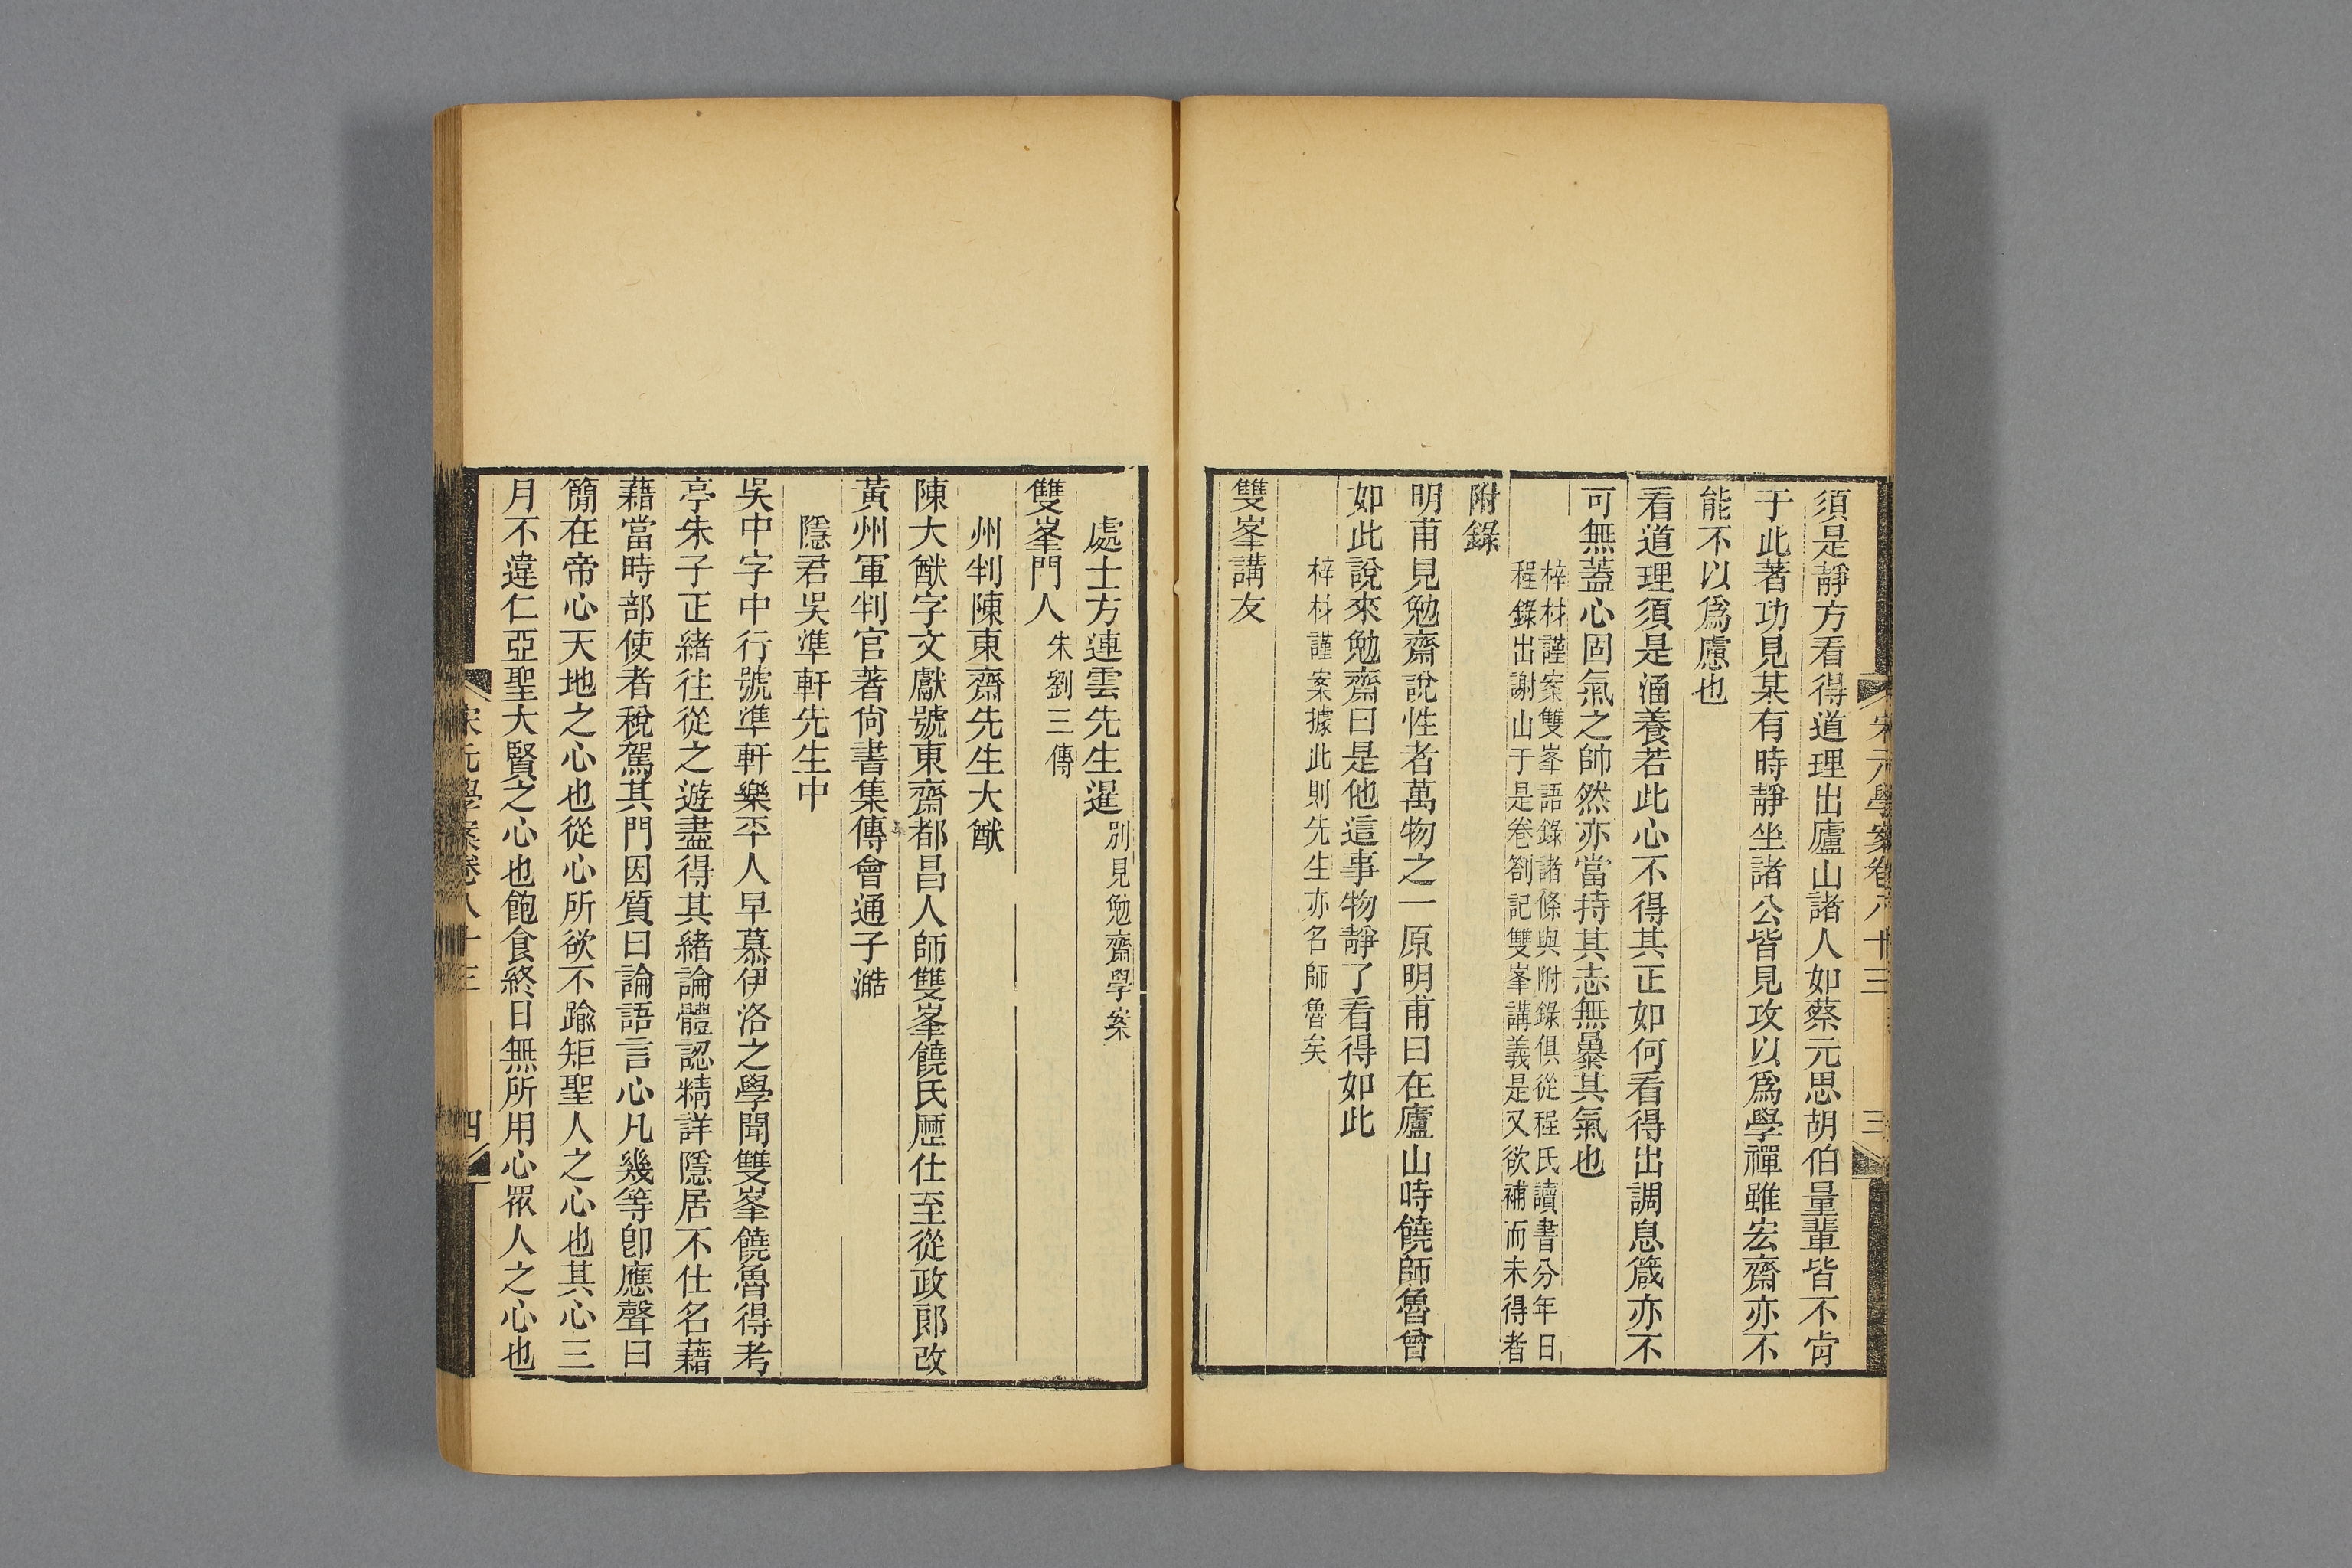 宋元學案卷八十三
三
須是靜方看得道理出廬山諸人如蔡元思胡伯量輩皆不肯
于此著功見某有時靜坐諸公皆見攻以爲學禪雖宏齋亦不
能不以爲慮也
看道理須是涵養若此心不得其正如何看得出調息箴亦不
可無蓋心固氣之帥然亦當持其志無暴其氣也
梓材謹案雙峯語錄諸條與附錄俱從程氏讀書分年日
程錄出謝山于是卷劄記雙峯講義是又欲補而未得者
附錄
明甫見勉齋說性者萬物之一原明甫曰在廬山時饒師魯曾
如此說來勉齋曰是他這事物靜了看得如此
梓材謹案據此則先生亦名師魯矣
雙峯講友
處士方連雲先生暹別見勉齋學案
雙峯門人朱劉三傳
州判陳東齋先生大猷
陳大猷字文獻號東齋都昌人師雙峯饒氏歷仕至從政郎改
黃州軍判官著尚書集傳會通子澔
隱君吳準軒先生中
吳中字中行號準軒樂平人早慕伊洛之學聞雙峯饒魯得考
亭朱子正緒往從之遊盡得其緒論體認精詳隱居不仕名藉
藉當時部使者稅駕其門因質曰論語言心凡幾等卽應聲曰
簡在帝心天地之心也從心所欲不踰矩聖人之心也其心三
月不違仁亞聖大賢之心也飽食終日無所用心眾人之心也
宋元學案卷八十三
四